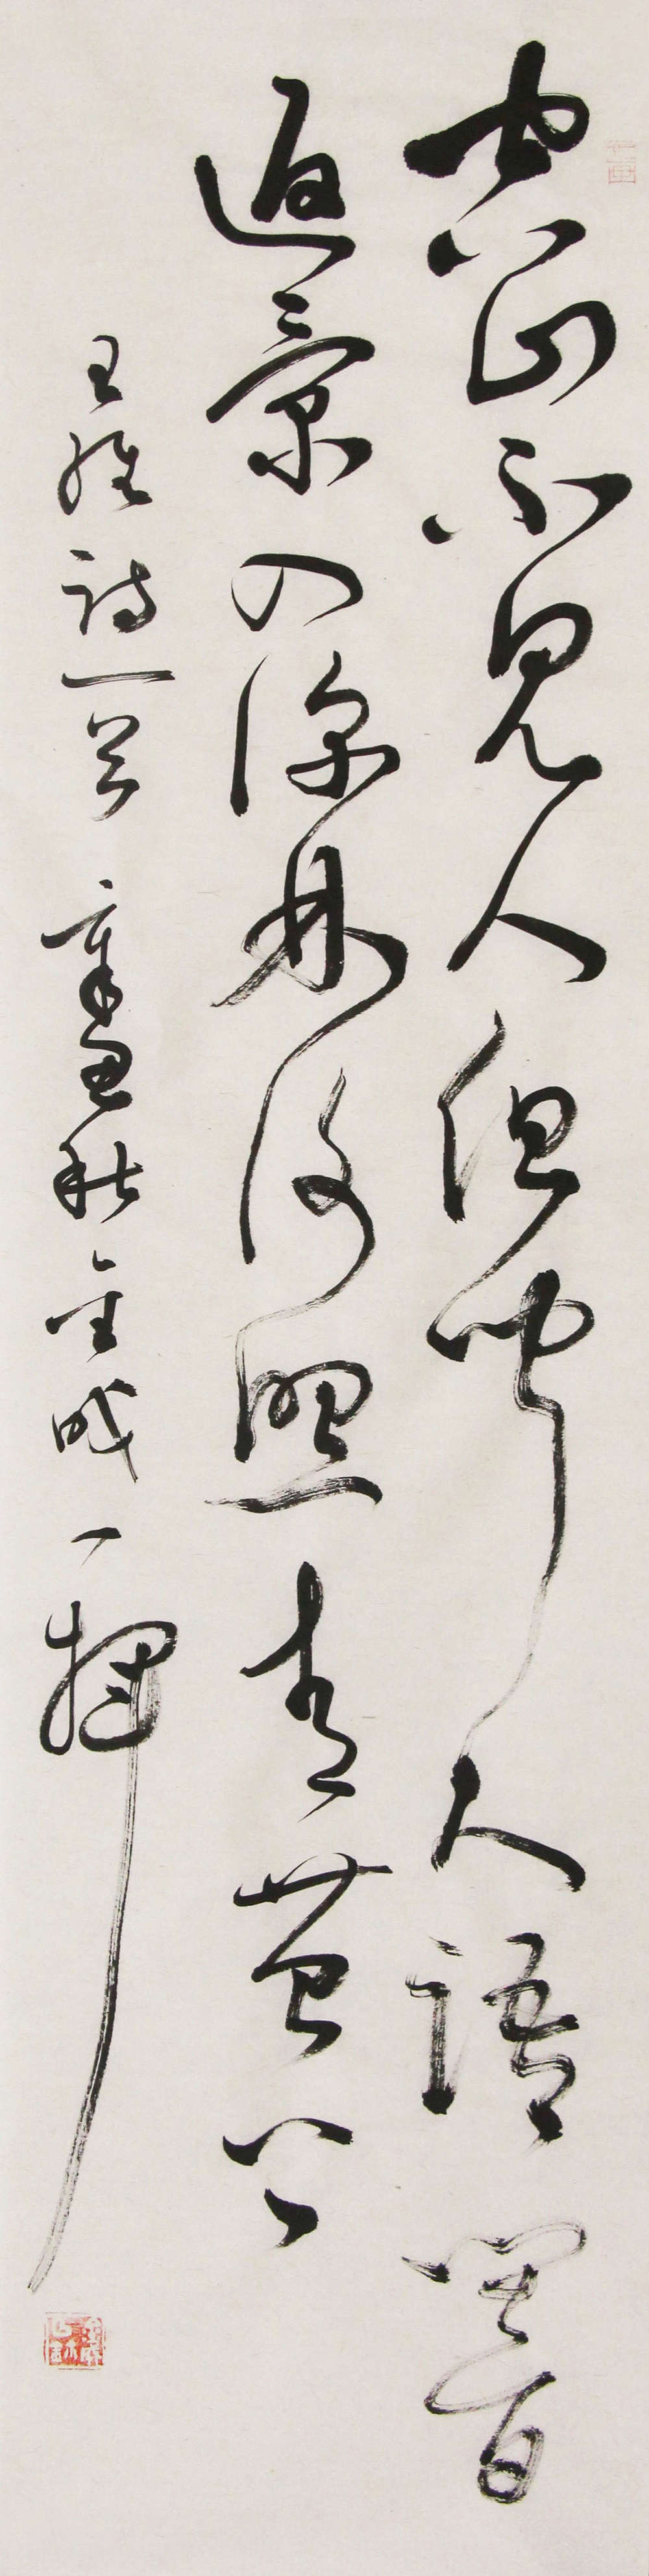 空山不見人但聞人語響
返景入深林復照青苔上
王維詩一首 辛巳秋 金成一揮